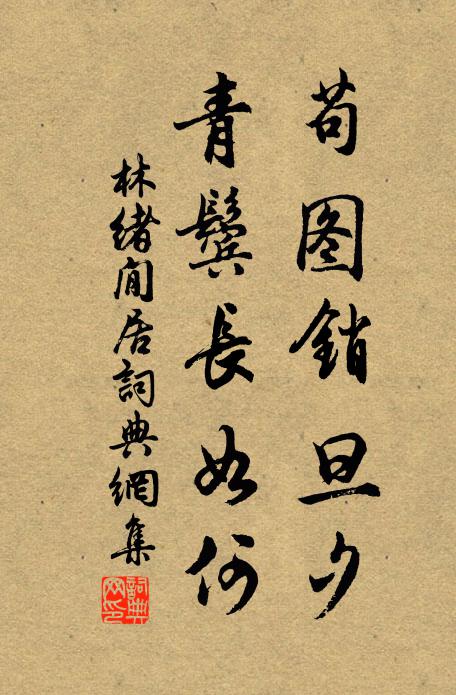 苟图銷旦夕
青鬓長如何
林緒閒居詞典網集
詞典网印